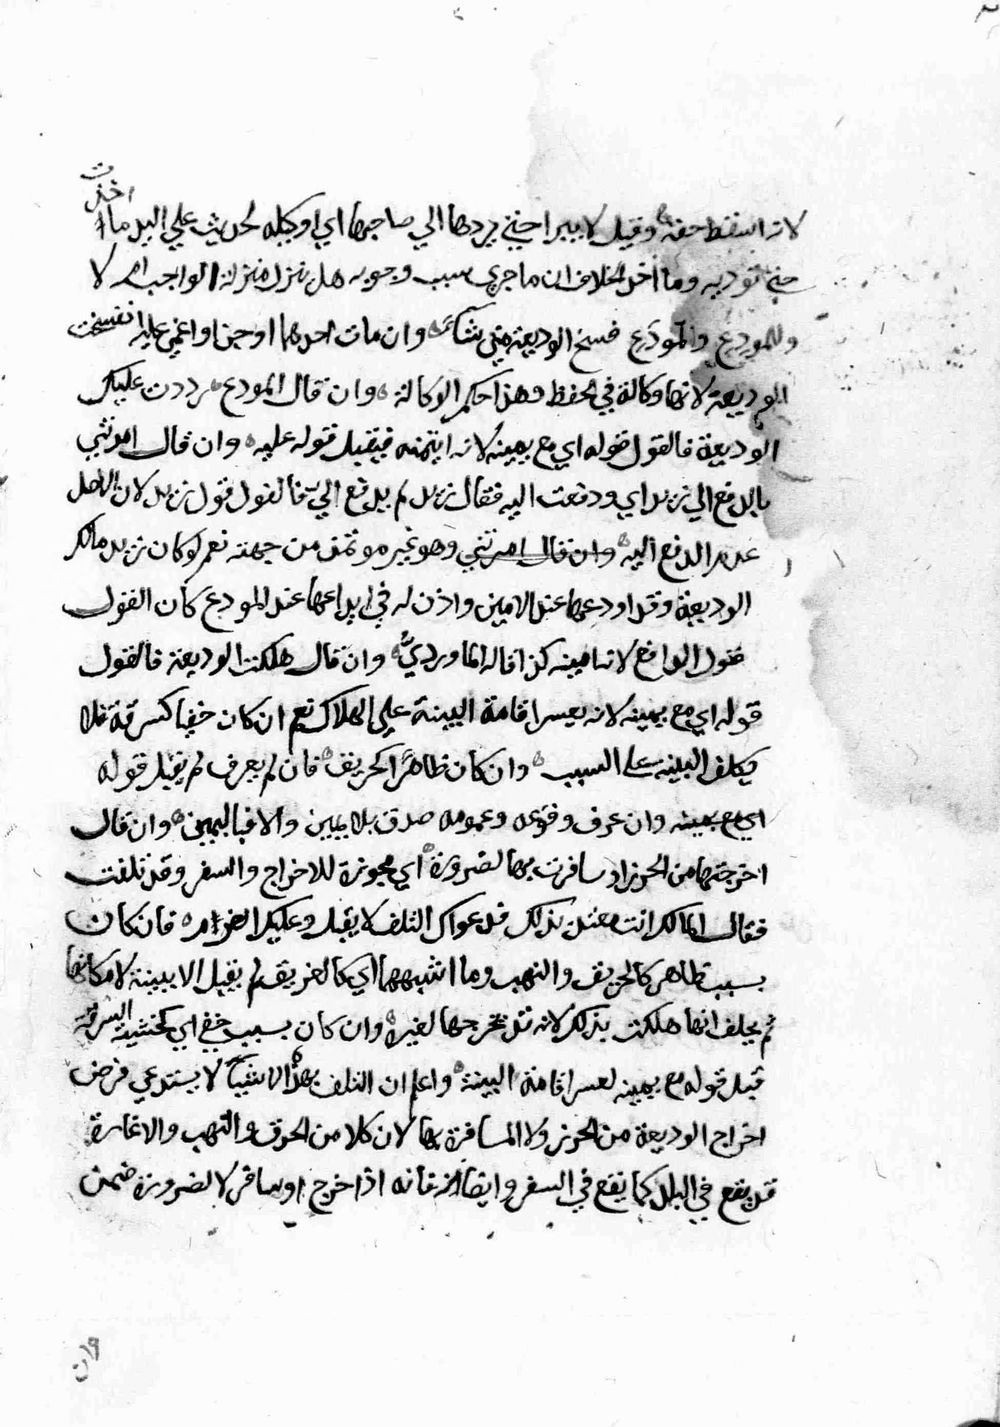 لانه اسقط حقه وقيل لا يبرا حتي يردها الي صاحبها اي او وكيله لحديث علي اليد ما اخذت
حتي توديه وماخذ الخلاف ان ما جري سبب وجوبه هل ينزل منزلة الواجب ام لا
وللمودع والمودَع فسخ الوديعة متي شا وان مات احدهما او جن او اغمي عليه انفسخت
الوديعة لانها وكالة في الحفظ وهذا حكم الوكالة وان قال المودع رددت عليك
الوديعة فالقول قوله اي مع يمينه لانه ايتمنه فيقبل قوله عليه وان قال امرتني
بالدفع الي زيد اي ودفعت اليه فقال زيد لم يدفع اليّ فالقول قول زيد لان الاصل
عدم الدفع اليه وان قال امرتني وهو غير موتمن من جهته نعم لو كان زيد مالك
الوديعة وقد اودعها عند الامين واذن له في ايداعها عند المودع كان القول
قول الدافع لانه امينه كذا قاله الماوردي وان قال هلكت الوديعة فالقول
قوله اي مع يمينه لانه يعسر اقامة البينة علي الهلاك نعم ان كان خفيا كسرقة فلا
يكلف البينه علي السبب وان كان ظاهرا كحريق فان لم يعرف لم يقبل قوله
اي مع يمينه وان عرف وقوعه وعمومه صدق بلا يمين والا فباليمين وان قال
اخرجتها من الحرز او سافرت بها لضرورة اي مجوزة للاخراج والسفر وقد تلفت
فقال المالك انت معتد بذلك فدعواك التلف لا يقبل وعليك الغرام فان كان
بسبب ظاهر كالحريق والنهب وما اشبهها اي كالغريق لم يقبل الا ببينة لامكانها
ثم يحلف انها هلكت بذلك لانه قد يخرجها لغيره وان كان بسبب خفي اي كخشية السرقة
قبل قوله مع يمينه لعسر اقامة البينة واعلم ان التلف بهذه الاشيا لا يستدعي فرض
اخراج الوديعة من الحرز ولا المسافرة بها لان كلا من الحرق والنهب والاغارة
قد يقع في البلد كما يقع في السفر وايضا فانه اذا خرج او سافر لا لضرورة ضمن